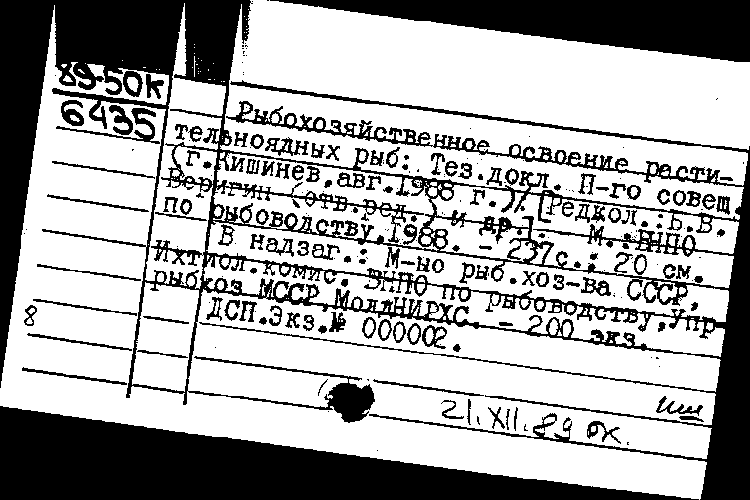 89-50К
6435
Рыбохозяйственное освоение расти-
тельноядных рыб: Тез.докл. П-го совещ.
(г.Кишинев,авг.1988 г.)/. [Редкол.:Б.В.
Веригин (отв.ред.) и др.]. М.:ВНПО
по рыбоводству,1988. - 237с.; 20 см.
В надзаг.: М-но рыб.хоз-ва СССР,
Ихтиол.комис. ВНПО по рыбоводству,Упр-
рыбхоз МССР,МолдНИРХС. - 200 экз.
ДСП.Экз.№ 000002.
8
21.XII.89